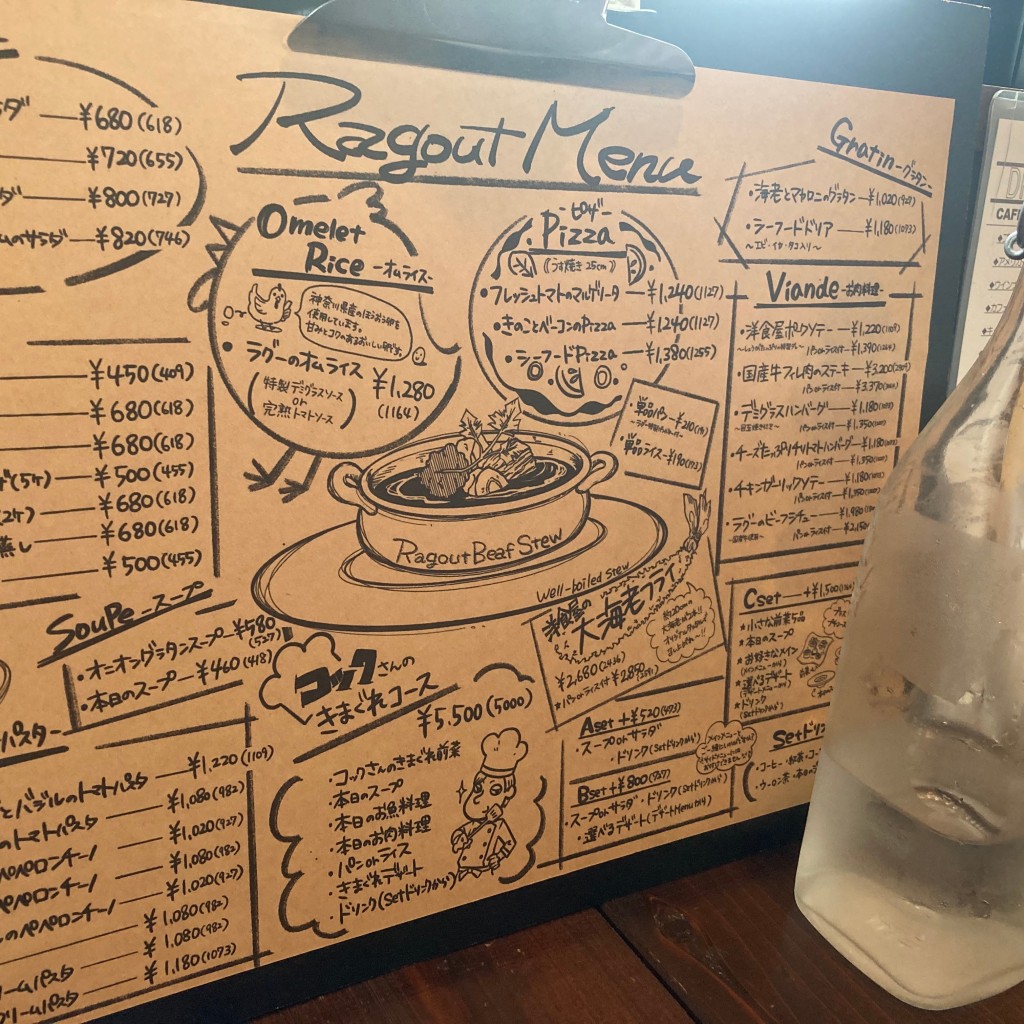 Ragout Menu
¥680(618)
¥720(655)
¥800(727)
¥820(746)
¥450(409)
¥680(618)
¥680(618)
¥500(455)
¥680(618)
蒸し ¥680(618)
¥500(455)
Soupe -スープ
・オニオングラタンスープ ¥580
(527)
・本日のスープ ¥460(418)
¥1,220(1109)
バジルのトマトパスタ ¥1,080(982)
のトマトパスタ ¥1,020(927)
ペペロンチーノ ¥1,080(982)
ペペロンチーノ ¥1,020(927)
のペペロンチーノ ¥1,080(982)
¥1,080(982)
クリームパスタ ¥1,180(1073)
クリームパスタ
Omelet
Rice -オムライス-
神奈川県産のほうおう卵を
使用しています。
甘みとコクのあるおいしい卵です。
・ラグーのオムライス ¥1,280
(1164)
特製デミグラスソース
or
完熟トマトソース
-ピザ-
Pizza
(うす焼き25cm)
・フレッシュトマトのマルゲリータ ¥1,240(1127)
・きのことベーコンのPizza ¥1,240(1127)
・シーフードPizza ¥1,380(1255)
・単品パン ¥210
・単品ライス ¥190(173)
Ragout Beaf Stew
well-boiled stew
洋食屋の
大海老フライ
¥2,680(2436)
★パンorライス付 ¥2,850
コックさんの
きまぐれコース
¥5,500(5000)
・コックさんのきまぐれ前菜
・本日のスープ
・本日のお魚料理
・本日のお肉料理
・パンorライス
・きまぐれデザート
・ドリンク(Setドリンクから)
Aset +¥520(473)
・スープorサラダ
・ドリンク(Setドリンクから)
Bset +¥800(727)
・スープorサラダ・ドリンク(Setドリンクから)
・選べるデザート(デザートMenuから)
Gratin -グラタン-
・海老とマカロニのグラタン ¥1,020(927)
・シーフードドリア ¥1,180(1073)
〜エビ・イカ・タコ入り〜
Viande -お肉料理-
・洋食屋ポークソテー ¥1,220(1109)
パンorライス付 ¥1,390(1264)
・国産牛フィレ肉のステーキ ¥3,200
パンorライス付 ¥3,370
・デミグラスハンバーグ ¥1,180
パンorライス付 ¥1,350
・チーズたっぷりチリトマトハンバーグ ¥1,180
パンorライス付 ¥1,350
・チキンガーリックソテー ¥1,180
パンorライス付 ¥1,350
・ラグーのビーフシチュー ¥1,980
パンorライス付 ¥2,150
Cset +¥1,500
★小さな前菜5品
★本日のスープ
★お好きなメイン
(メインメニューから)
★選べるデザート
(デザートメニューから)
★ドリンク
(Setドリンクから)
Setドリ
・コーヒー・紅茶・コー
・ウーロン茶・本日の
CAF